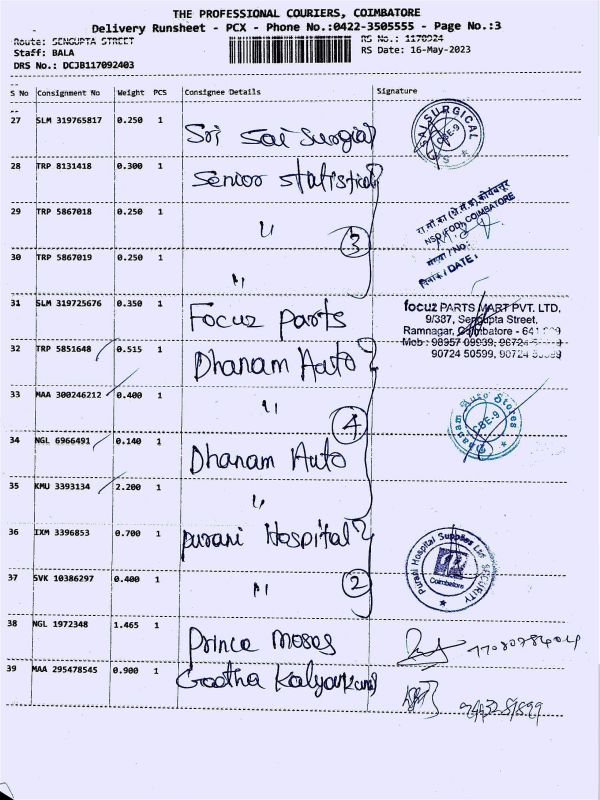 THE PROFESSIONAL COURIERS, COIMBATORE
Delivery Runsheet - PCX - Phone No.:0422-3505555 - Page No.:3
Route: SENGUPTA STREET
RS No.: 1170924
Staff: BALA
RS Date: 16-May-2023
DRS No.: DCJB117092403
S No Consignment No Weight PCS Consignee Details Signature
27 SLM 319765817 0.250 1 Sri Sai Surgical
SAI SURGICAL
CBE-9
28 TRP 8131418 0.300 1 Senior Statistical
29 TRP 5867018 0.250 1 "
3
NSO (FOD), COIMBATORE
संख्या / NO:
दिनांक / DATE:
30 TRP 5867019 0.250 1 "
31 SLM 319725676 0.350 1 Focuz parts
focuz PARTS MART PVT. LTD,
9/387, Sengupta Street,
Ramnagar, Coimbatore - 641 009
Mob : 98957 09939,
90724 50599,
32 TRP 5851648 0.515 1 Dhanam Auto
33 MAA 300246212 0.400 1 "
4
Dhanam Auto Stores
CBE-9
34 NGL 6966491 0.140 1 Dhanam Auto
35 KMU 3393134 2.200 1 "
36 IXM 3396853 0.700 1 purani Hospital
Purani Hospital Supplies Ltd
SECURITY
Coimbatore
37 SVK 10386297 0.400 1 "
2
38 NGL 1972348 1.465 1 Prince moses
39 MAA 295478545 0.900 1 Geetha Kalyan